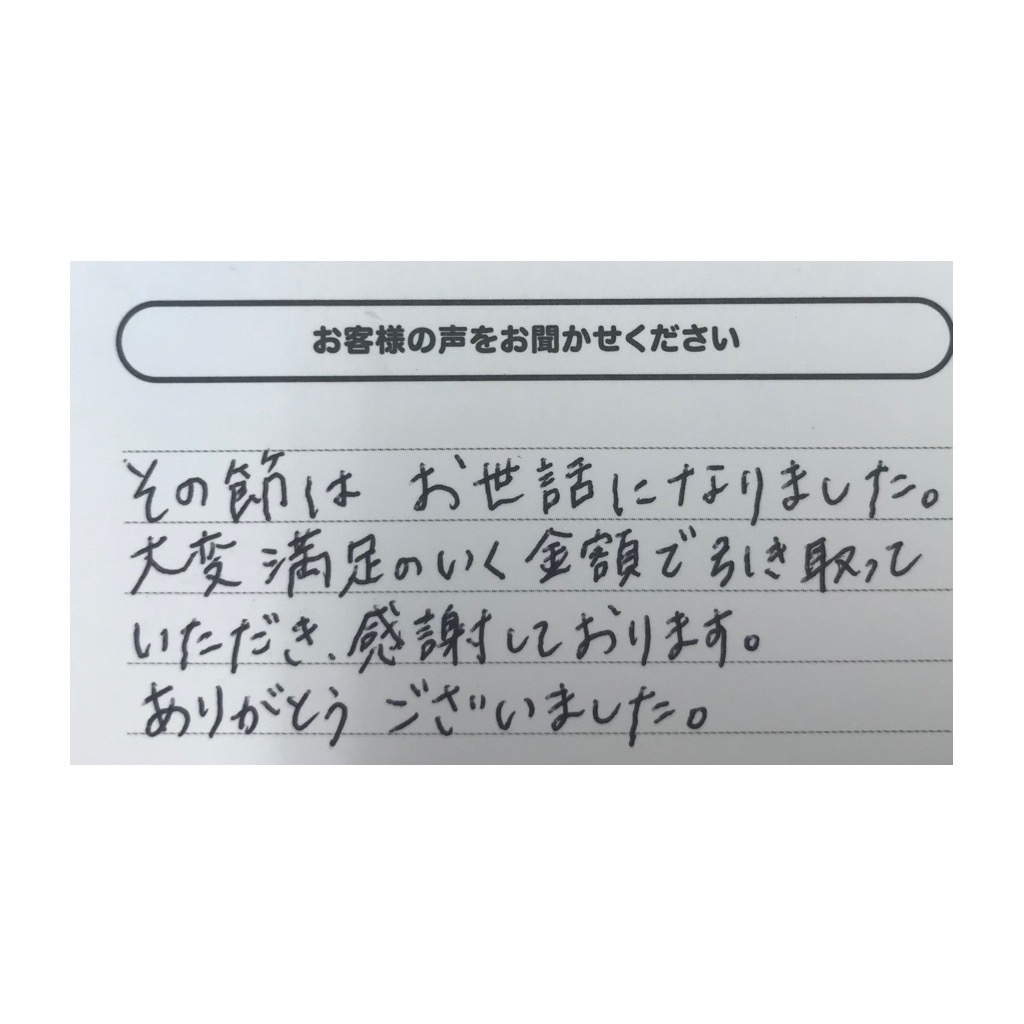 お客様の声をお聞かせください
その節は お世話になりました。
大変満足のいく金額で引き取って
いただき、感謝しております。
ありがとう ございました。